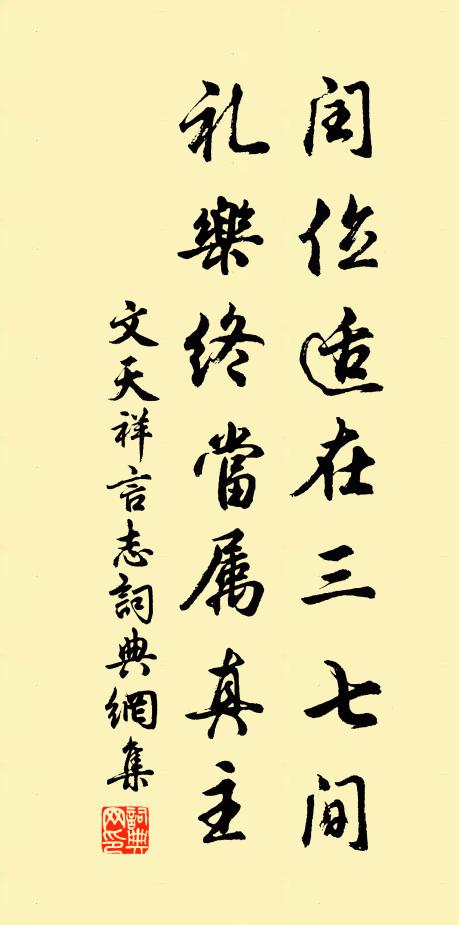 闰位适在三七间
礼樂终當属真主
文天祥言志詞典網集
詞典网印